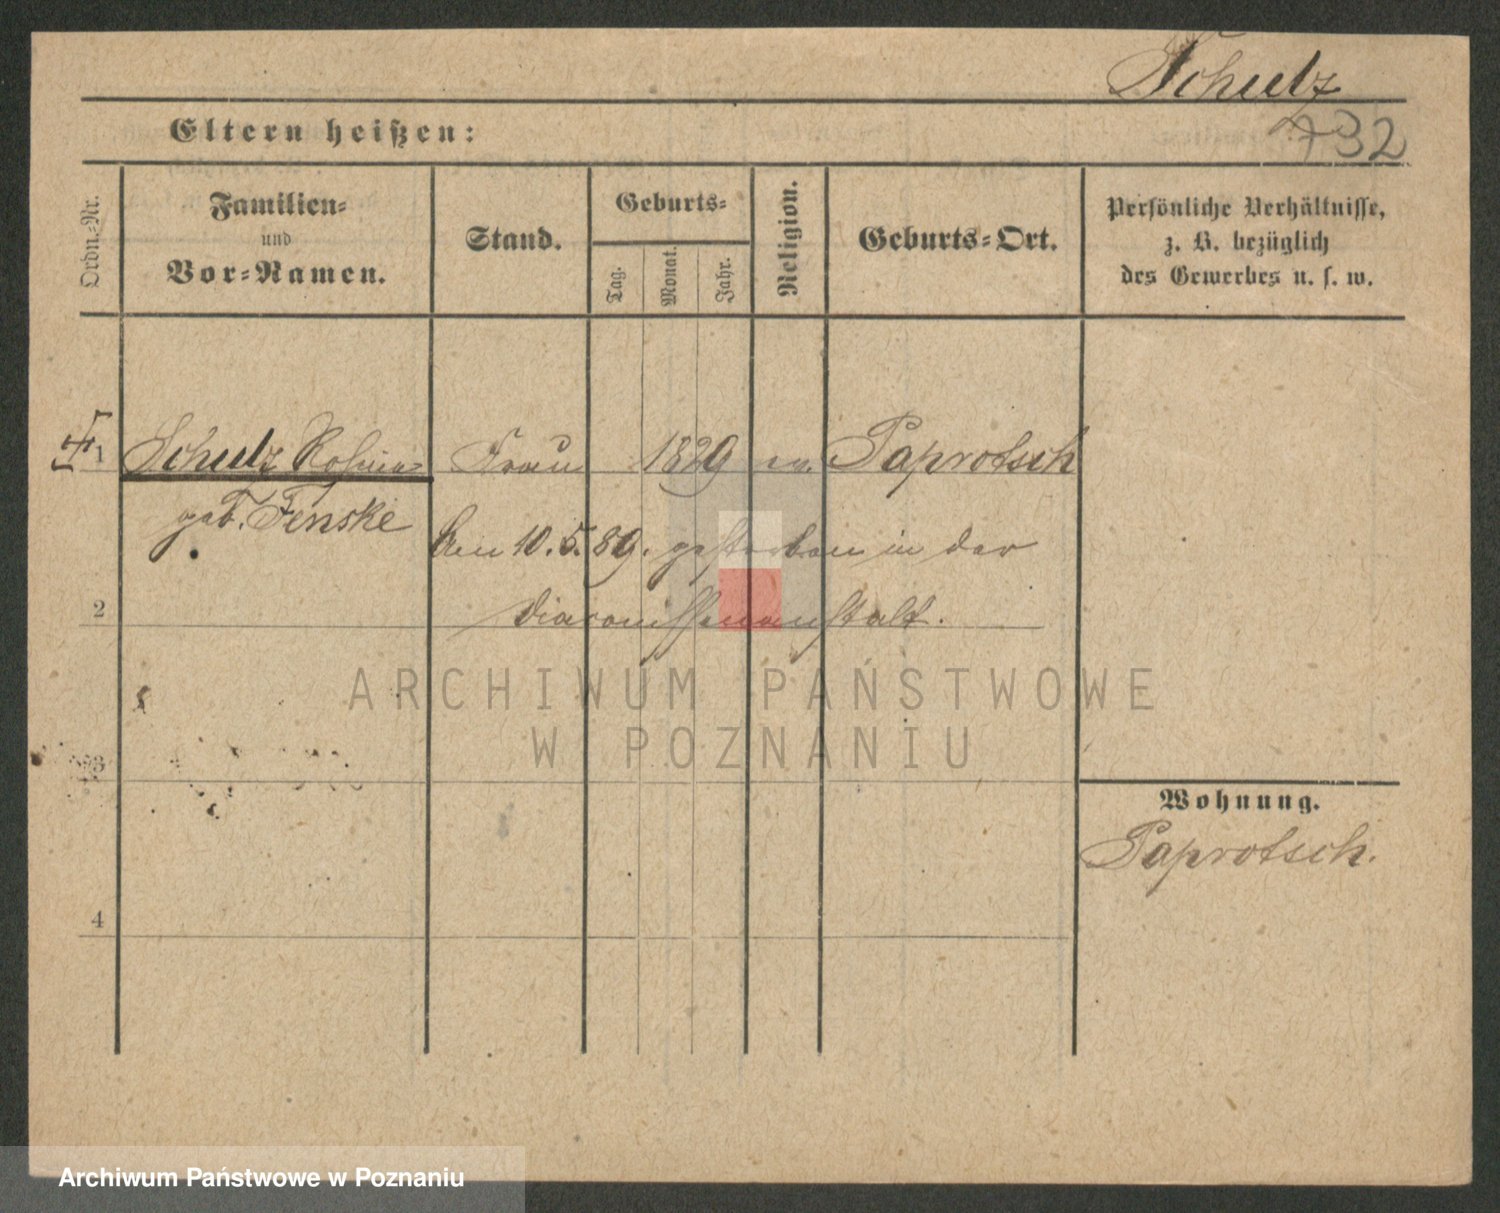 Schulz
732
Eltern heißen:
Ordn.-Nr.
Familien-
und
Vor-Namen.
Stand.
Geburts-
Tag.
Monat.
Jahr.
Religion.
Geburts-Ort.
Persönliche Verhältnisse,
z. B. bezüglich
des Gewerbes u. s. w.
1 Schulz Rosina Frau 1829 ev. Paprotsch
geb. Fenske
den 10.5.89. gestorben in der
2 Diaconissenanstalt.
ARCHIWUM PAŃSTWOWE
W POZNANIU
3
Wohnung.
Paprotsch.
4
Archiwum Państwowe w Poznaniu